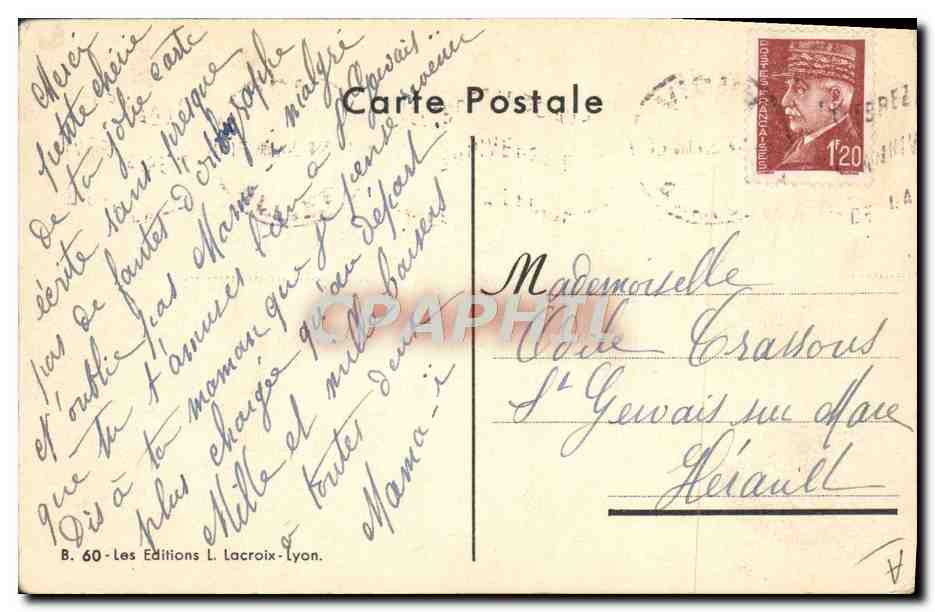 Carte Postale
POSTES FRANÇAISES
1F20
Merci
petite chérie
de ta jolie carte
écrite sans presque
pas de fautes d'orthographe
N'oublie pas Mama-ï malgré
que tu t'amuses bien à St Gervais..
Dis à ta maman que je pense revenir
plus chargée qu'au départ!
Mille et mille baisers
à toutes deux
Mama-ï
Mademoiselle
Odile Trassous
St Gervais sur Mare
Hérault
CPAPHIL
B. 60 - Les Editions L. Lacroix - Lyon.
A